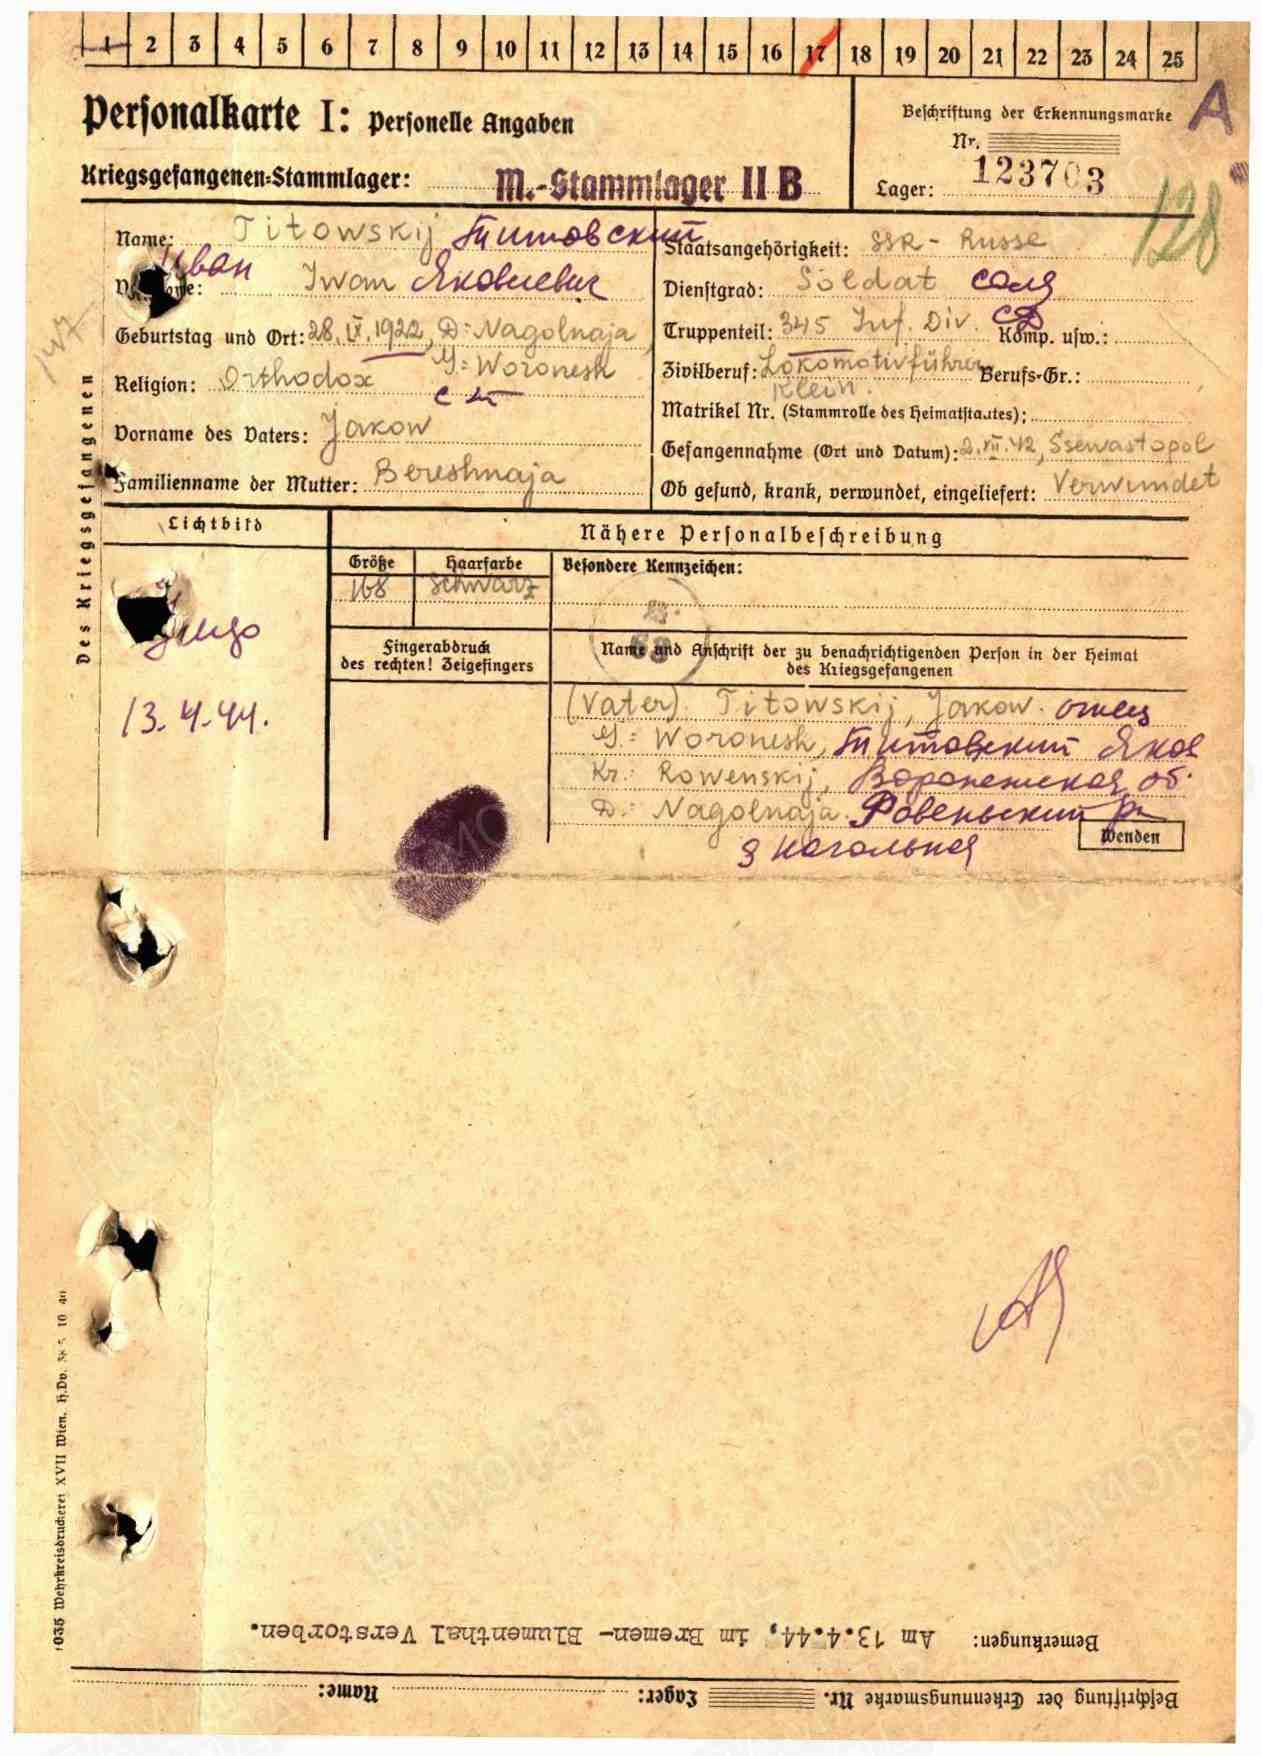 1 2 3 4 5 6 7 8 9 10 11 12 13 14 15 16 17 18 19 20 21 22 23 24 25
Personalkarte I: Personelle Angaben
Kriegsgefangenen-Stammlager: M.-Stammlager II B
Beschriftung der Erkennungsmarke
Nr. 123703
Lager:
A
128
Name: Titowskij Титовский
Иван
Iwan Яковлевич
Geburtstag und Ort: 28.IX.1922, D: Nagolnaja
G: Woronesh
Religion: Orthodox
Vorname des Vaters: Jakow
Familienname der Mutter: Bereshnaja
Staatsangehörigkeit: SSR - Russe
Dienstgrad: Soldat солд
Truppenteil: 345 Inf. Div. СД Komp. usw.:
Zivilberuf: Lokomotivführer Berufs-Gr.:
Klein.
Matrikel Nr. (Stammrolle des Heimatstaates):
Gefangennahme (Ort und Datum): 2.VII.42, Ssewastopol
Ob gesund, krank, verwundet, eingeliefert: Verwundet
Des Kriegsgefangenen
Lichtbild
Nähere Personalbeschreibung
Größe Haarfarbe Besondere Kennzeichen:
168 schwarz
Fingerabdruck
des rechten! Zeigefingers
Name und Anschrift der zu benachrichtigenden Person in der Heimat
des Kriegsgefangenen
13.4.44.
(Vater) Titowskij, Jakow. отец
G: Woronesh, Титовский Яков
Kr.: Rowenskij, Воронежская об.
D: Nagolnaja. Ровеньский р-н
д Нагольная
Wenden
1035 Wehrkreisdruckerei XVII Wien. H.Dv. 38 5 10 40
Bemerkungen: Am 13.4.44, im Bremen- Blumenthal Verstorben.
Beschriftung der Erkennungsmarke Nr. Lager: Name: